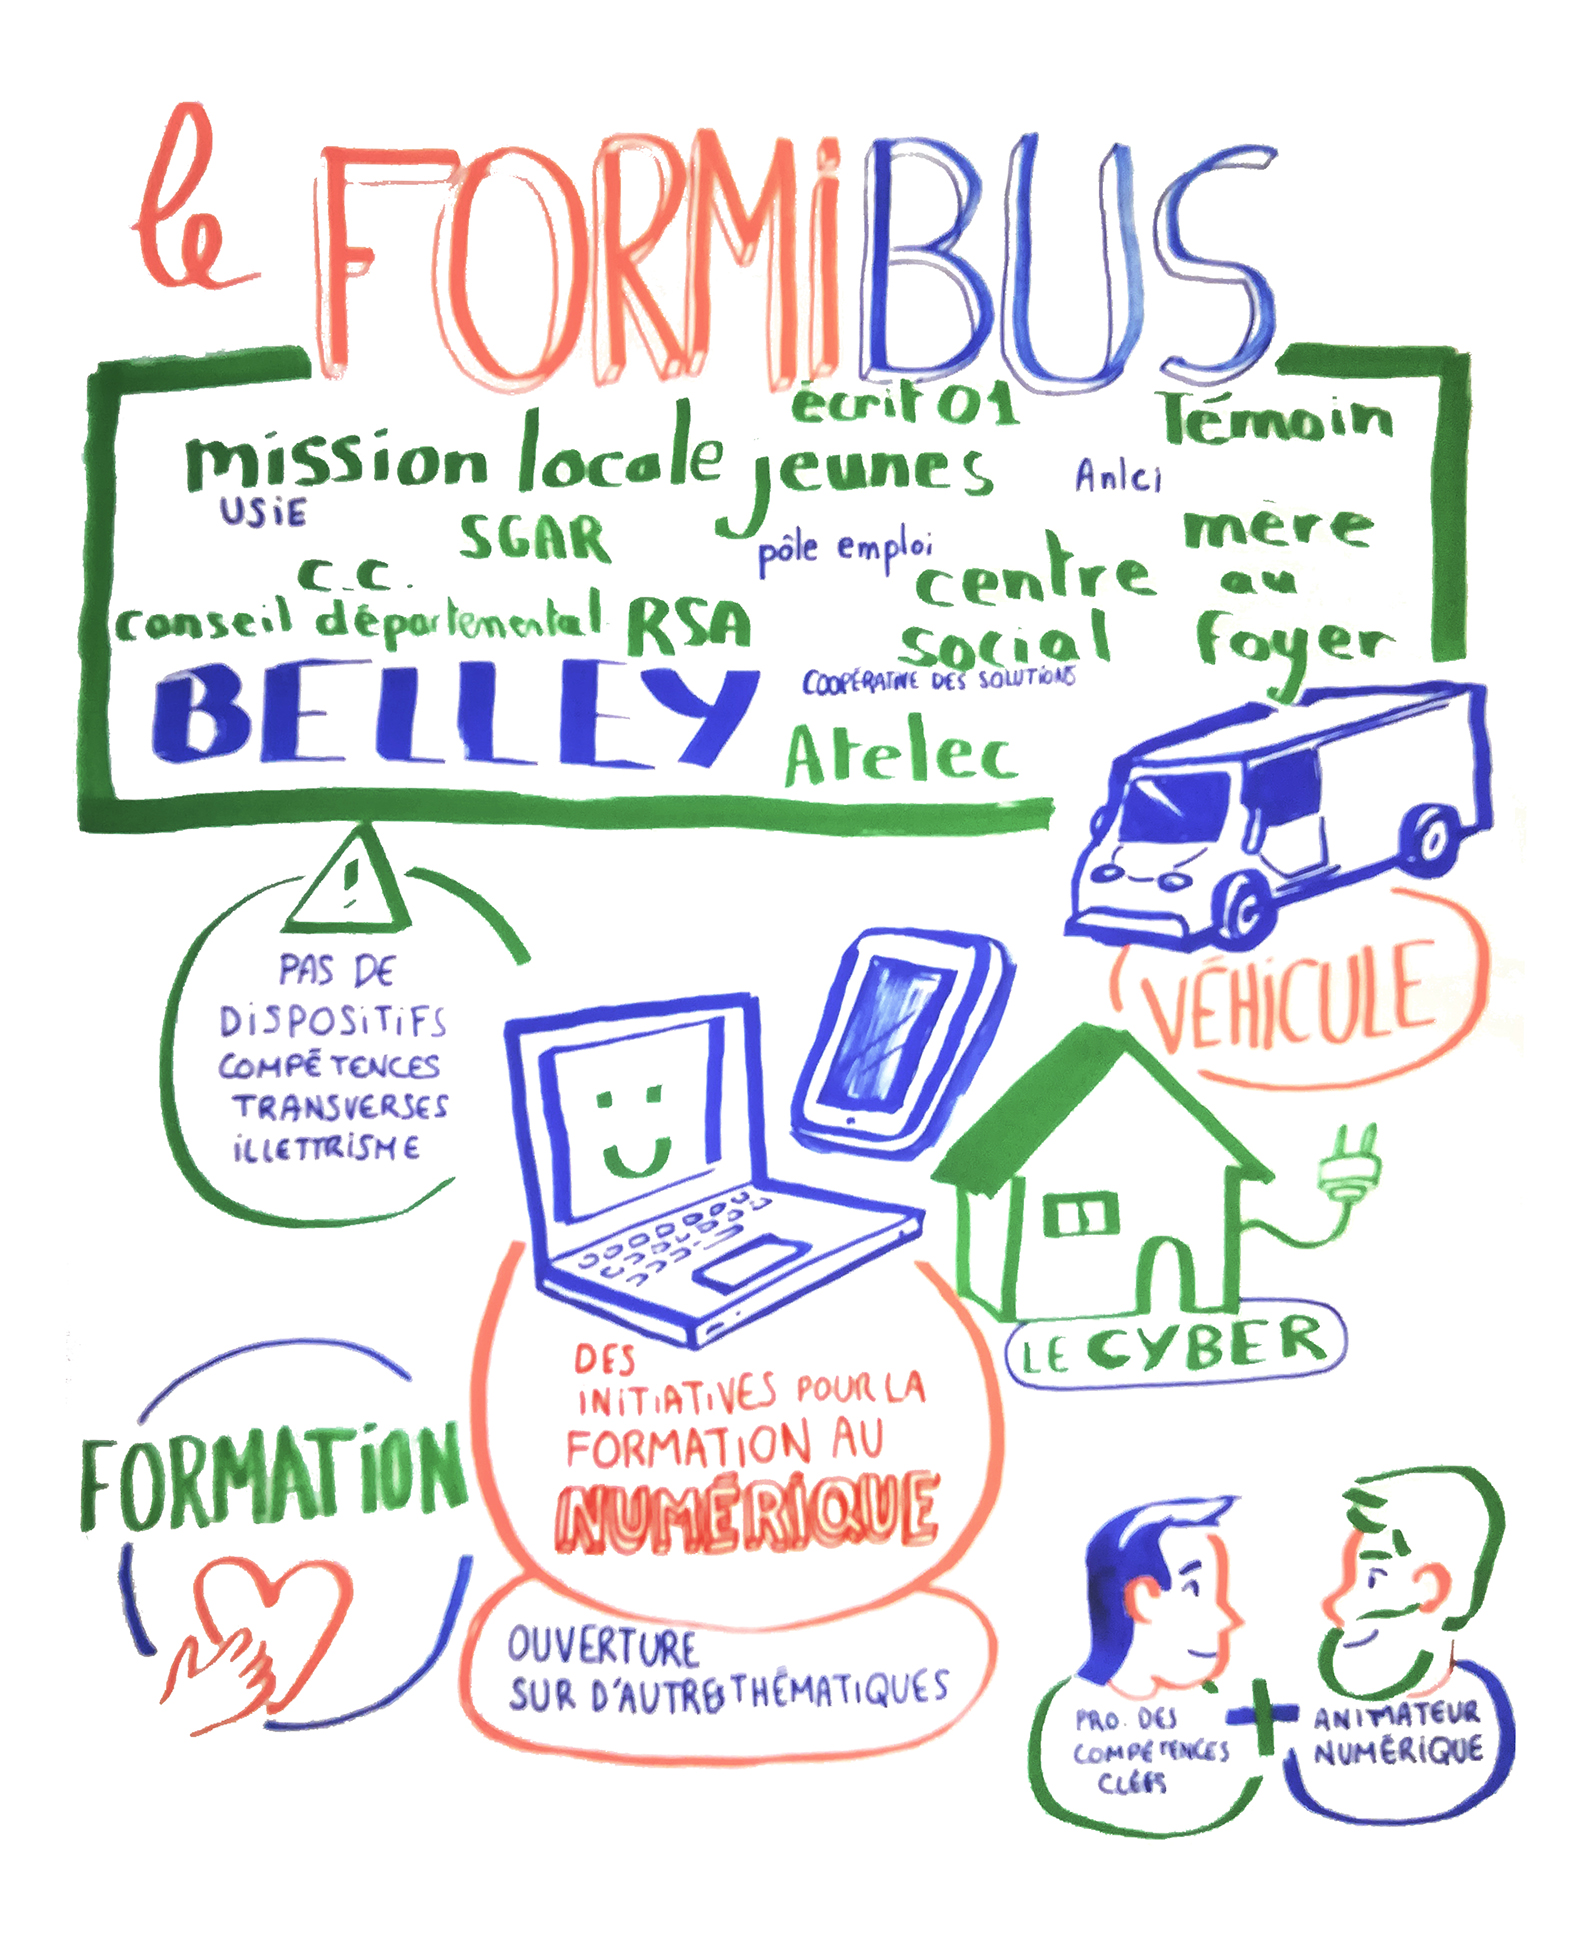 le FORMiBUS
écrit 01
Témoin
mission locale jeunes
Anlci
USiE
SGAR
pôle emploi
mère
au
foyer
c.c.
centre
social
conseil départemental RSA
BELLEY
COOPÉRATIVE DES SOLUTiONS
Atelec
PAS DE
DiSPOSiTiFS
COMPÉTENCES
TRANSVERSES
iLLETTRiSME
VÉHiCULE
LE CYBER
DES
INiTiATiVES POUR LA
FORMATiON AU
NUMÉRiQUE
FORMATiON
OUVERTURE
SUR D'AUTRES THÉMATiQUES
PRO. DES
COMPÉTENCES
CLÉFS
+
ANiMATEUR
NUMÉRiQUE